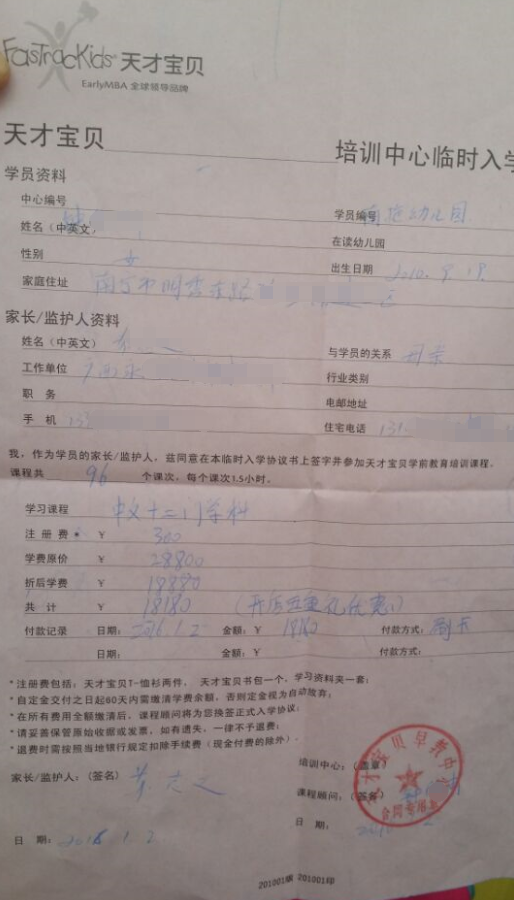 FasTracKids 天才宝贝
EarlyMBA 全球领导品牌
天才宝贝 培训中心临时入学
学员资料
中心编号 学员编号
姓名(中英文) 在读幼儿园 幼儿园
性别 女 出生日期 2010.9.19
家庭住址 南宁市明秀东路
家长/监护人资料
姓名(中英文) 与学员的关系 母亲
工作单位 广西 行业类别
职 务 电邮地址
手 机 133 住宅电话
我,作为学员的家长/监护人,兹同意在本临时入学协议书上签字并参加天才宝贝学前教育培训课程,
课程共 96 个课次,每个课次1.5小时。
学习课程 中文十二门学科
注 册 费 ¥ 300
学费原价 ¥ 28800
折后学费 ¥ 18880
共 计 ¥ 18180 (开店五重礼优惠)
付款记录 日期: 2016.1.2 金额:¥ 18180 付款方式: 刷卡
日期: 金额:¥ 付款方式:
*注册费包括:天才宝贝T-恤衫两件, 天才宝贝书包一个,学习资料夹一套;
*自定金交付之日起60天内需缴清学费余额,否则定金视为自动放弃;
*在所有费用全额缴清后,课程顾问将为您换签正式入学协议;
*请妥善保管原始收据或发票,如有遗失,一律不予退费;
*退费时需按照当地银行规定扣除手续费(现金付费的除外)。
培训中心:(盖章)
天才宝贝早教中心
合同专用章
家长/监护人:(签名)
课程顾问:(签名)
日 期:
日 期: 2016.1.2
201001版 201001印